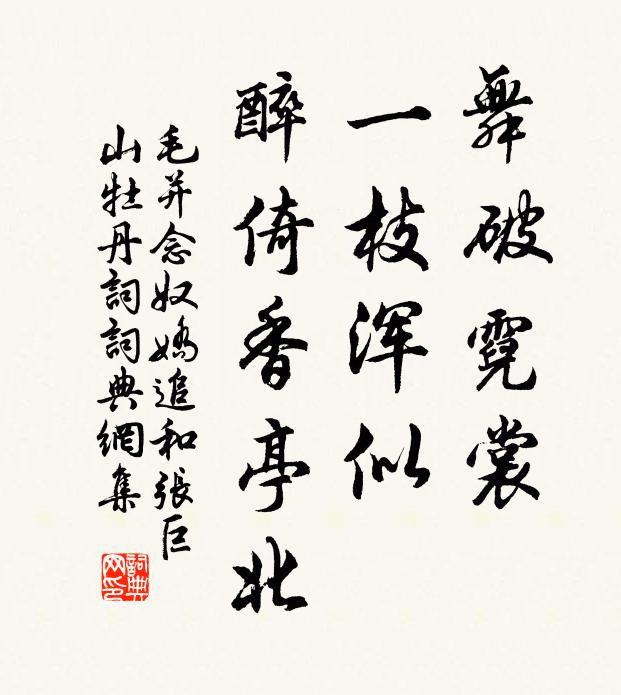 舞破霓裳
一枝浑似
醉倚香亭北
毛并念奴嬌追和張巨
山牡丹詞詞典網集
詞典
网印